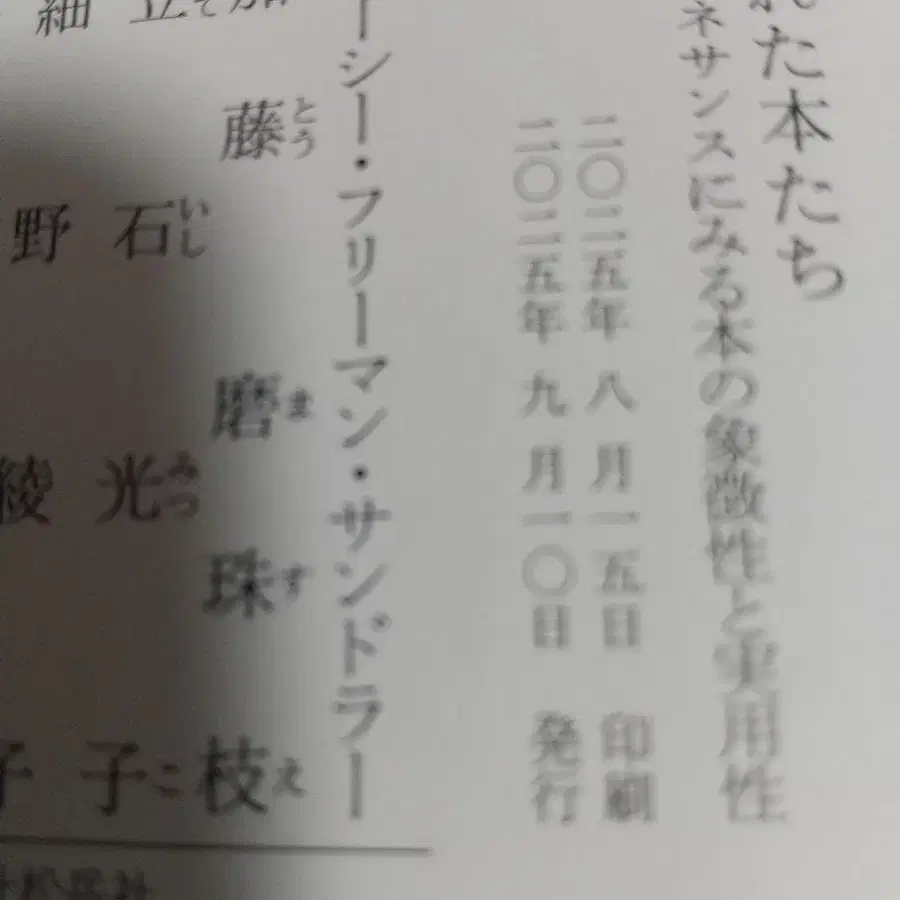 れた本たち
ネサンスにみる本の象徴性と実用性
二〇二五年 八月一五日 印刷
二〇二五年 九月一〇日 発行
ーシー・フリーマン・サンドラー
藤とう 磨ま 珠す 枝え
石いし 光みつ 子こ
野 綾 子